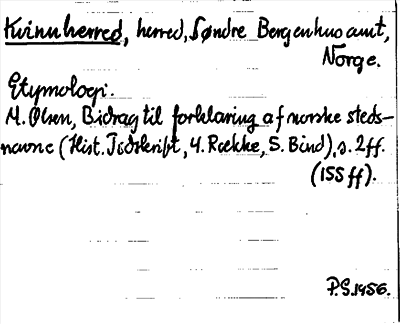 Kvinnherred, herred, Søndre Bergenhus amt,
Norge.
Etymologi.
M. Olsen, Bidrag til forklaring af norske steds-
navne (Hist. Tidskrift, 4. Række, 5. Bind), s. 2ff.
(155 ff).
P.S. 1956.